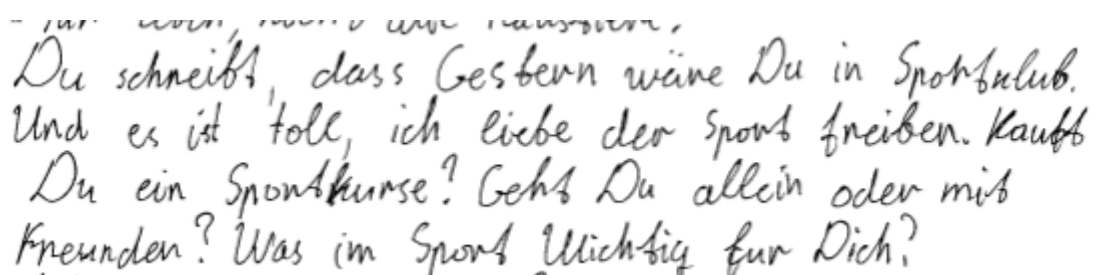 Du schreibt, dass Gestern wäre Du in Sportklub.
Und es ist toll, ich liebe der Sport treiben. Kauft
Du ein Sportkurse? Geht Du allein oder mit
Freunden? Was im Sport Wichtig fur Dich?